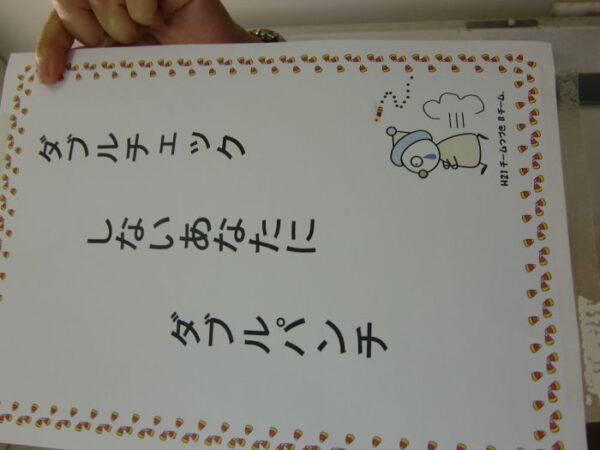 ダブルチェック
しないあなたに
ダブルパンチ
H21 チームつづき Bチーム